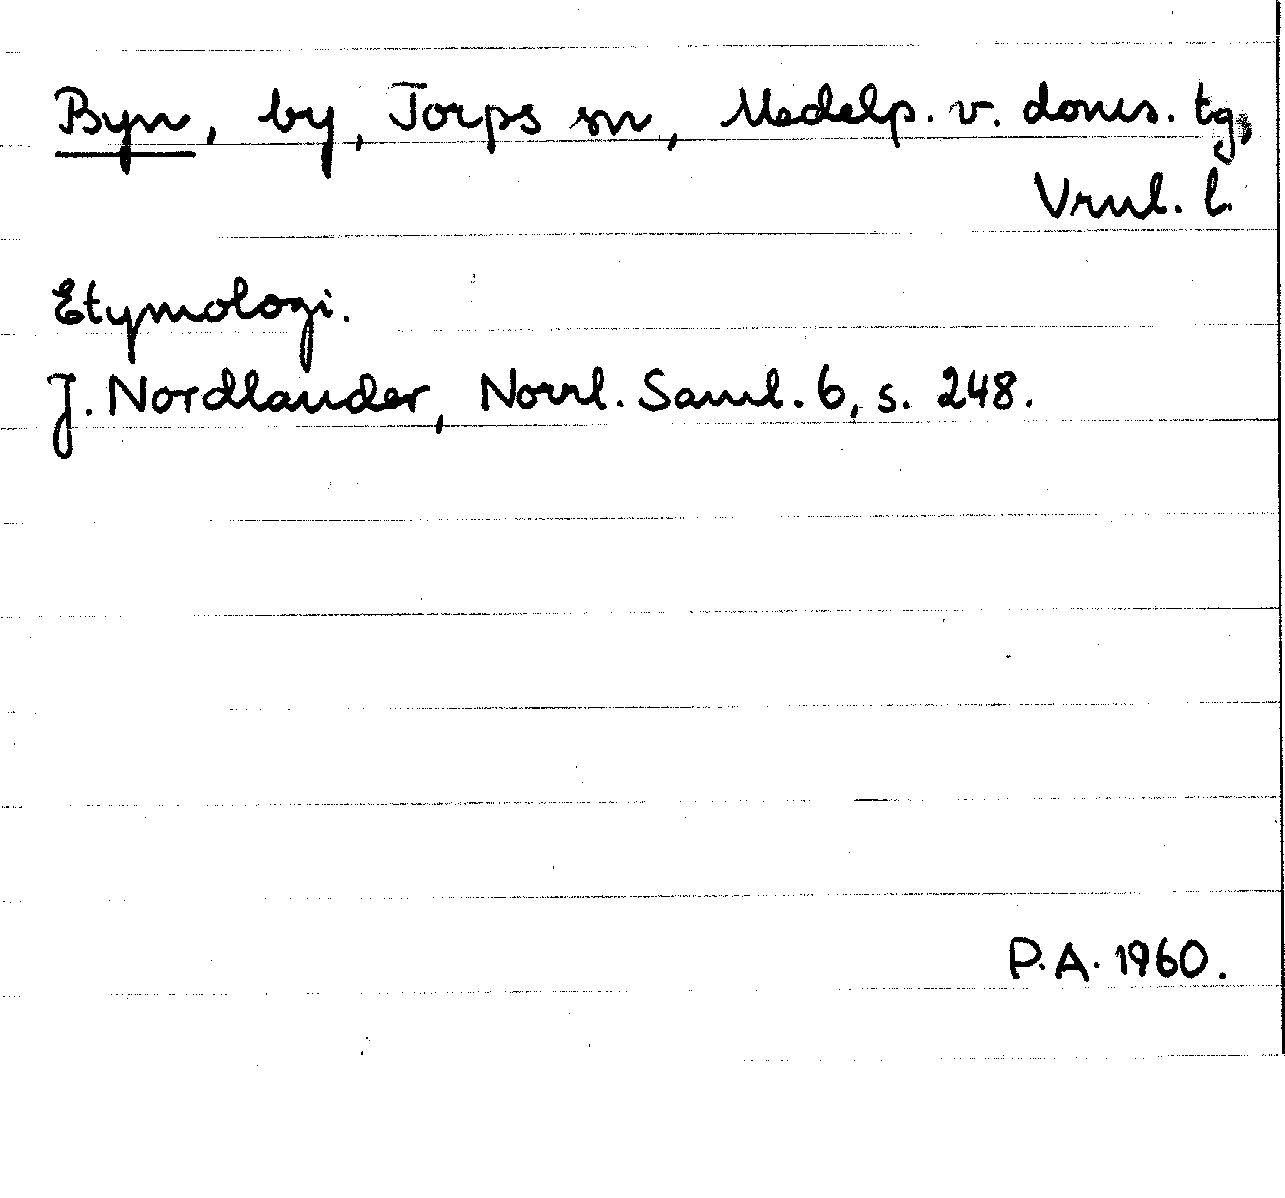 Byn, by, Torps sn, Medelp. v. doms. tg,
Vrnl. l.
Etymologi.
J. Nordlander, Norrl. Saml. 6, s. 248.
P.A. 1960.